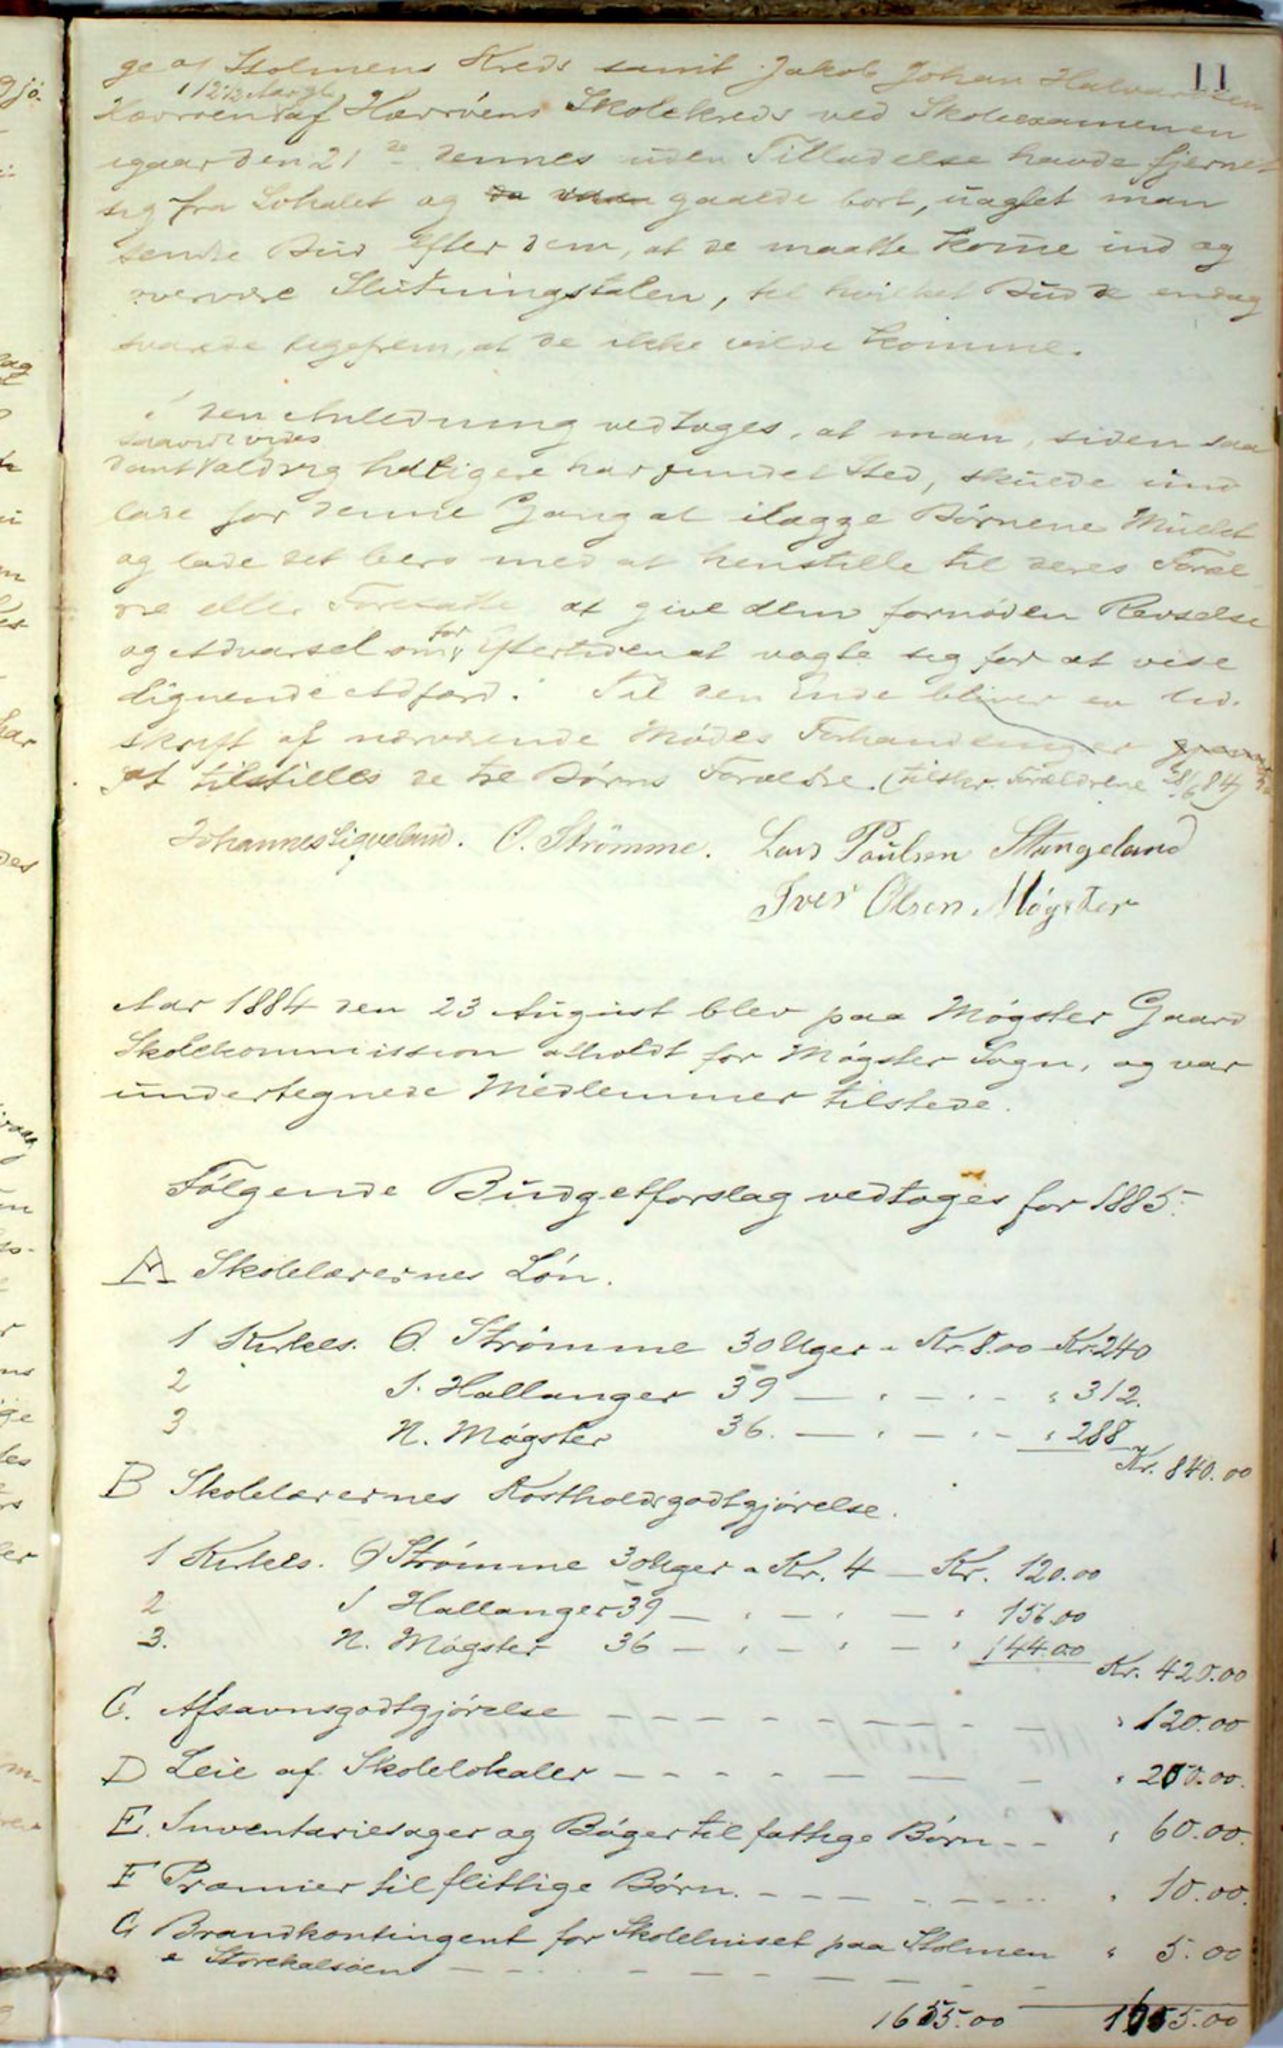 11
ge af Stolmens Kreds samt Jakob Johan Halvardsen
12 1/2 Aar gl.
Kærvoen af Hærvöens Skolekreds ved Skolexamenen
igaar den 21de dennes uden Tilladelse havde fjernet
sig fra Lokalet og da man gaaede bort, uagtet man
sendte Bud efter dem, at de maatte kome ind og
overvære Slutningstalen, til hvilket Bud de endog
svarede ligefrem, at de ikke vilde komme.
I den Anledning vedtoges, at man, siden saa
saavidt vides
dant aldrig tidligere har fundet Sted, skulde und
lade for denne Gang at ilægge Börnene Mulct
og lade det bero med at henstille til deres Foræl
dre eller Foresatte at give dem fornöden Revselse
og Advarsel om for Eftertiden at vogte sig for at vise
lignende Adfærd. Til den Ende bliver en Ud-
skrift af nærværende Mödes Forhandlinger
at tilstilles de tre Börns Forældre. (tilskr. Forældrene 28/6 84)
Johannes Sigveland. O. Strömme. Lars Paulsen Stangeland
Iver Olsen Møgster
Aar 1884 den 23 August blev paa Mögster Gaard
Skolekommission afholdt for Mögster Sogn, og var
undertegnede Medlemmer tilstede.
Fölgende Budgetforslag vedtoges for 1885.
A Skolelærernes Lön.
1 Kirkes. O. Strömme 30 Uger a Kr. 8.00 Kr. 240
2 S. Hallanger 39 — " — " — " 312.
3 N. Mögster 36. — " — " — " 288
Kr. 840.00
B Skolelærernes Kostholdsgodtgjörelse.
1 Kirkes. O Strömme 30 Uger a Kr. 4 — Kr. 120.00
2 S Hallanger 39 — " — " — " 156.00
3. N. Mögster 36 — " — " — " 144.00
Kr. 420.00
C. Afsavnsgodtgjörelse — — — — — — — " 120.00
D Leie af Skolelokaler — — — — — — — " 200.00.
E. Inventariesager og Böger til fattige Börn — — " 60.00.
F Præmier til flittige Börn. — — — — — — " 10.00.
G Brandkontingent for Skolehuset paa Stolmen " 5.00
& Storekalsöen — — — — — — —
1655.00 1655.00